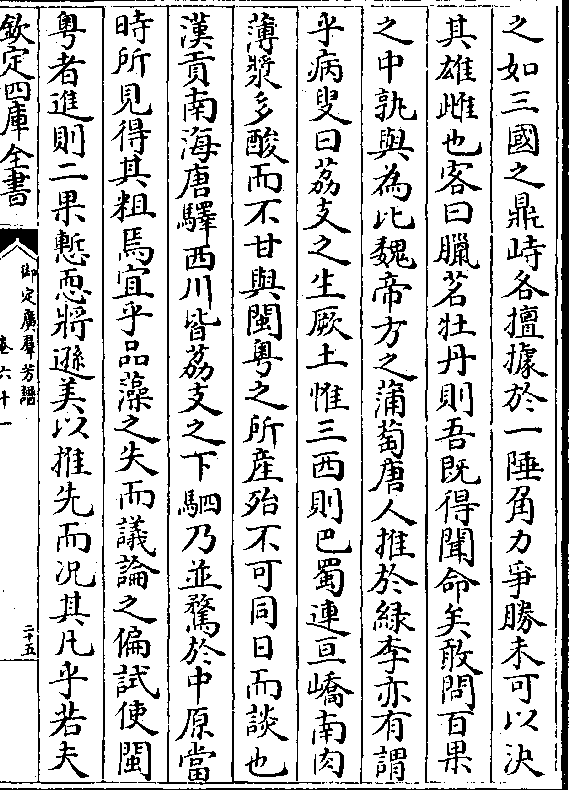 之如三國之鼎峙各擅據於一陲角力爭勝未可以決
其雄雌也客曰臘茗牡丹則吾既得聞命矣敢問百果
之中孰與為比魏帝方之蒲萄唐人推於綠李亦有謂
乎病叟曰荔支之生厥土惟三西則巴蜀連亘嶠南肉
薄漿多酸而不甘與閩粤之所産殆不可同日而談也
漢貢南海唐驛西川皆荔支之下駟乃並騖於中原當
時所見得其粗焉宜乎品藻之失而議論之偏試使閩
粤者進則二果慙恧將遜美以推先而况其凡乎若夫
欽定四庫全書
御定廣羣芳譜
卷六十一
二十五